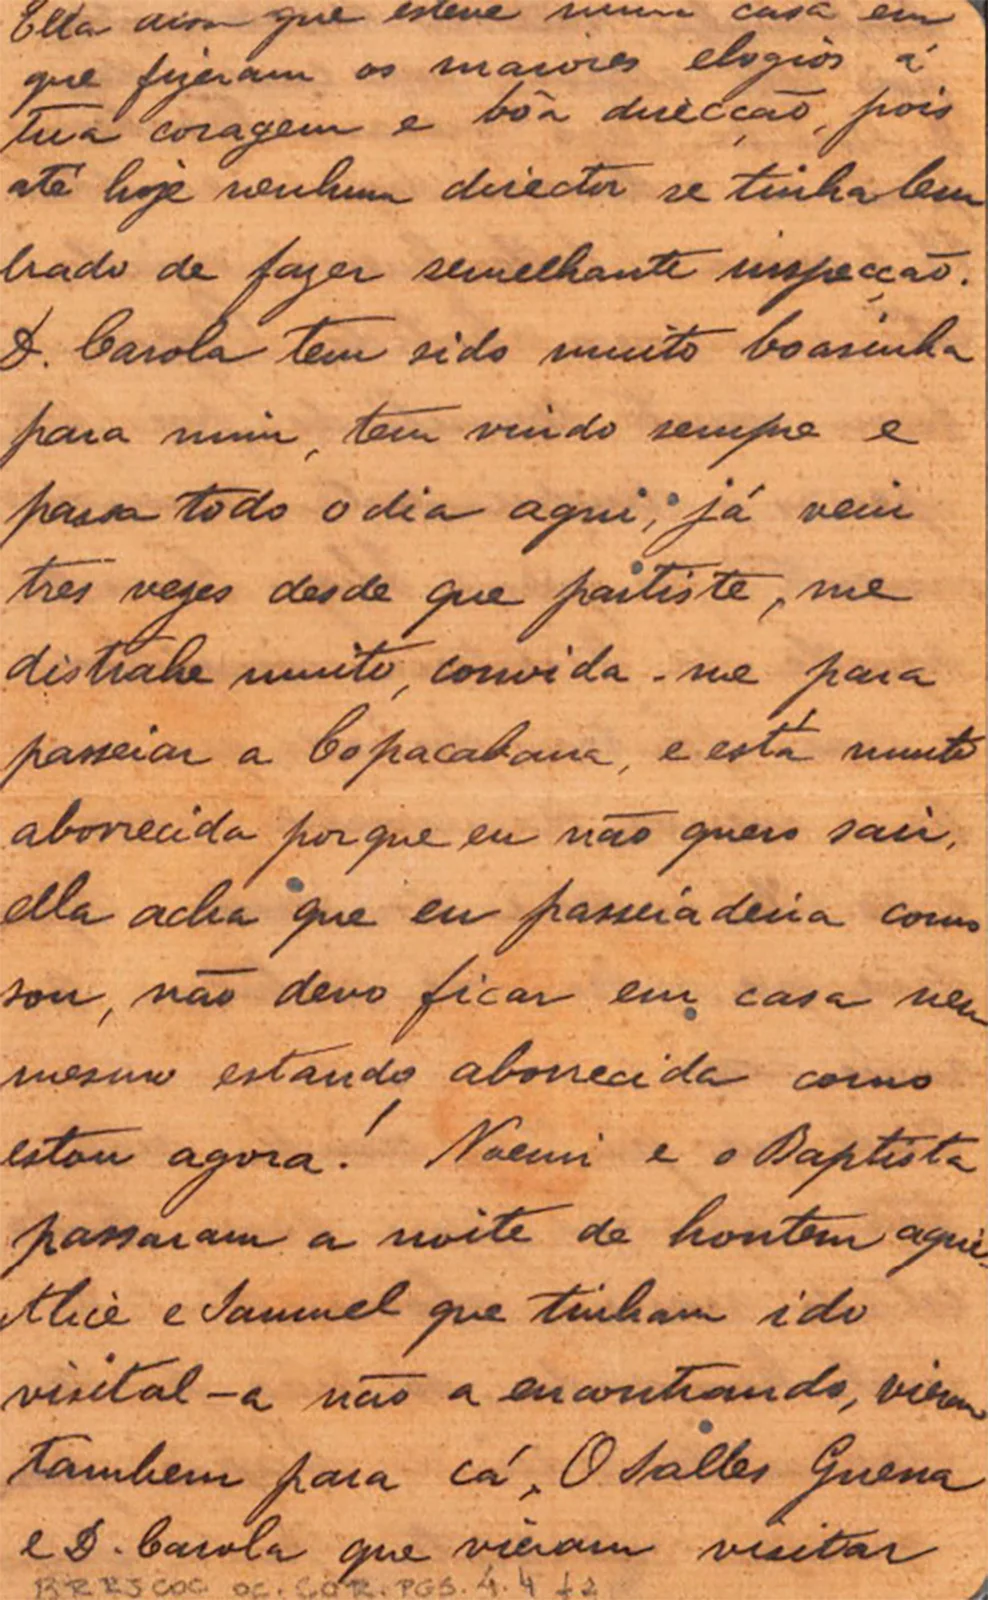 Ella disse que esteve numa casa em
que fizeram os maiores elogios á
tua coragem e bôa direcção, pois
até hoje nenhum director se tinha lem
brado de fazer semelhante inspecção.
D. Carola tem sido muito boasinha
para mim, tem vindo sempre e
passa todo o dia aqui; já veiu
tres vezes desde que partiste, me
distrahe muito, convida-me para
passeiar a Copacabana, e está muito
aborrecida porque eu não quero sair,
ella acha que eu passeiadeira como
sou, não devo ficar em casa nem
mesmo estando aborrecida como
estou agora! Noemi e o Baptista
passaram a noite de hontem aqui.
Alice e Samuel que tinham ido
visital-a não a encontrando, vieram
tambem para cá. O Salles Guerra
e D. Carola que vieram visitar
BR RJCOC OC.COR.PGS.4.4 f2